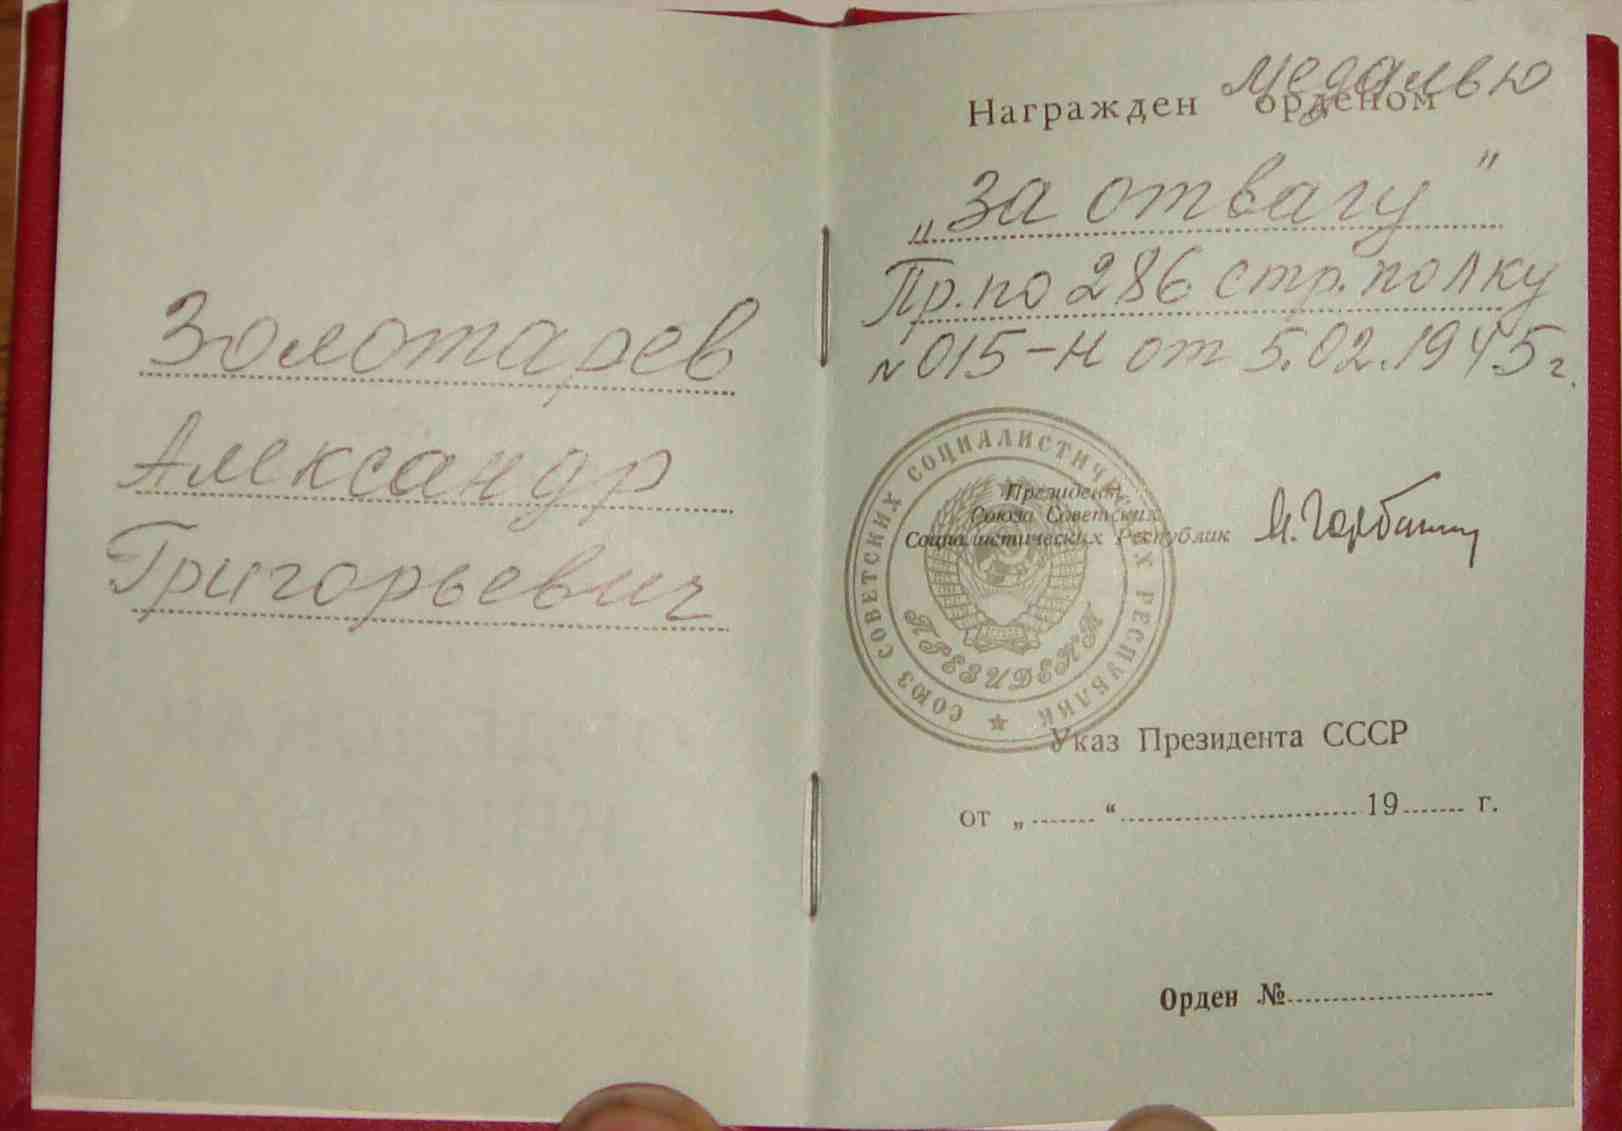 Золотарев
Александр
Григорьевич
медалью
Награжден орденом
„За отвагу"
Пр. по 286 стр. полку
№ 015-н от 5.02.1945 г.
СОЮЗ СОВЕТСКИХ СОЦИАЛИСТИЧЕСКИХ РЕСПУБЛИК
ПРЕЗИДЕНТ
Президент
Союза Советских
Социалистических Республик
М. Горбачев
Указ Президента СССР
от „ “ 19 г.
Орден №